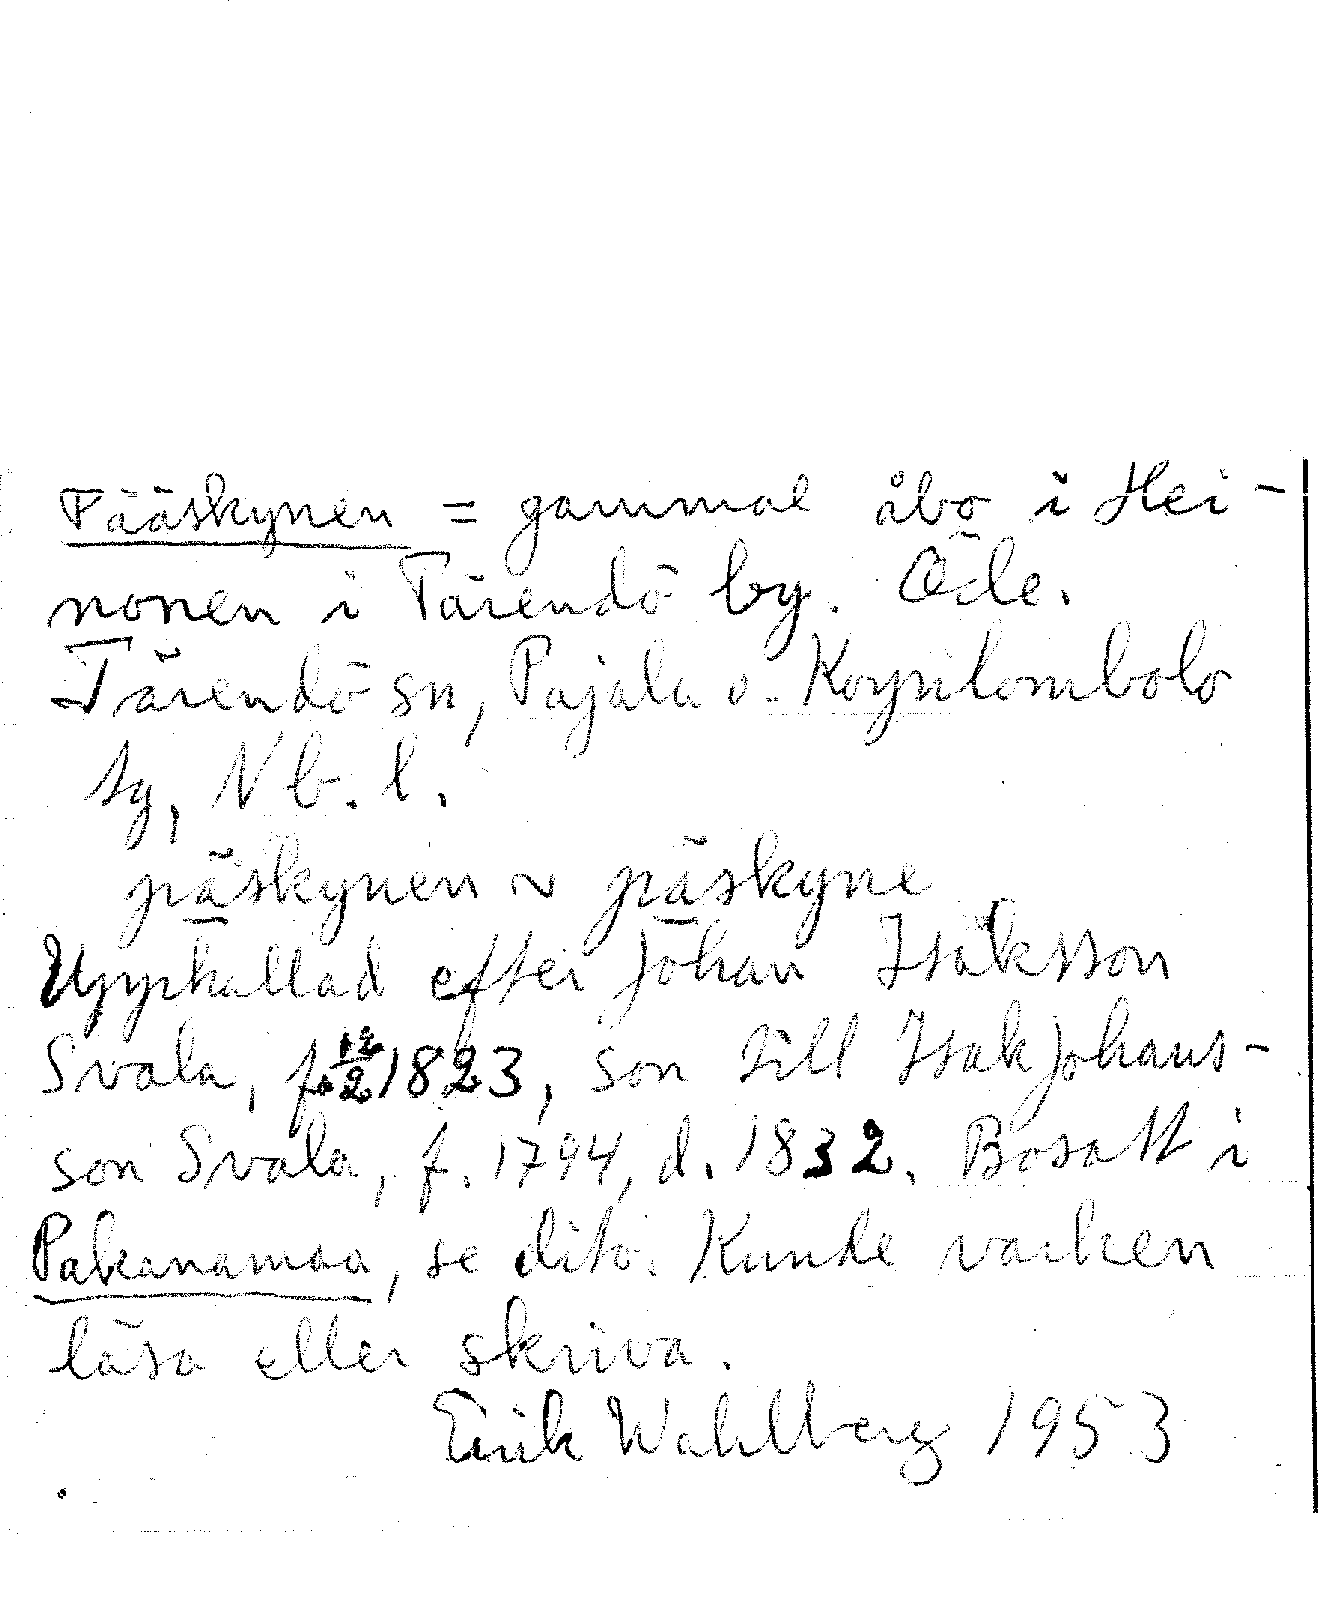 Pääskynen = gammal åbo i Hei-
nonen i Tärendö by. Öde.
Tärendö sn, Pajala o. Korpilombolo
tg, Nb. l.
pä̱skynen ~ pä̱skyne
Uppkallad efter Johan Isaksson
Svala, f. 12/2 1823, son till Isak Johans-
son Svala, f. 1794, d. 1832. Bosatt i
Pakanamaa, se dito. Kunde varken
läsa eller skriva.
Erik Wahlberg 1953